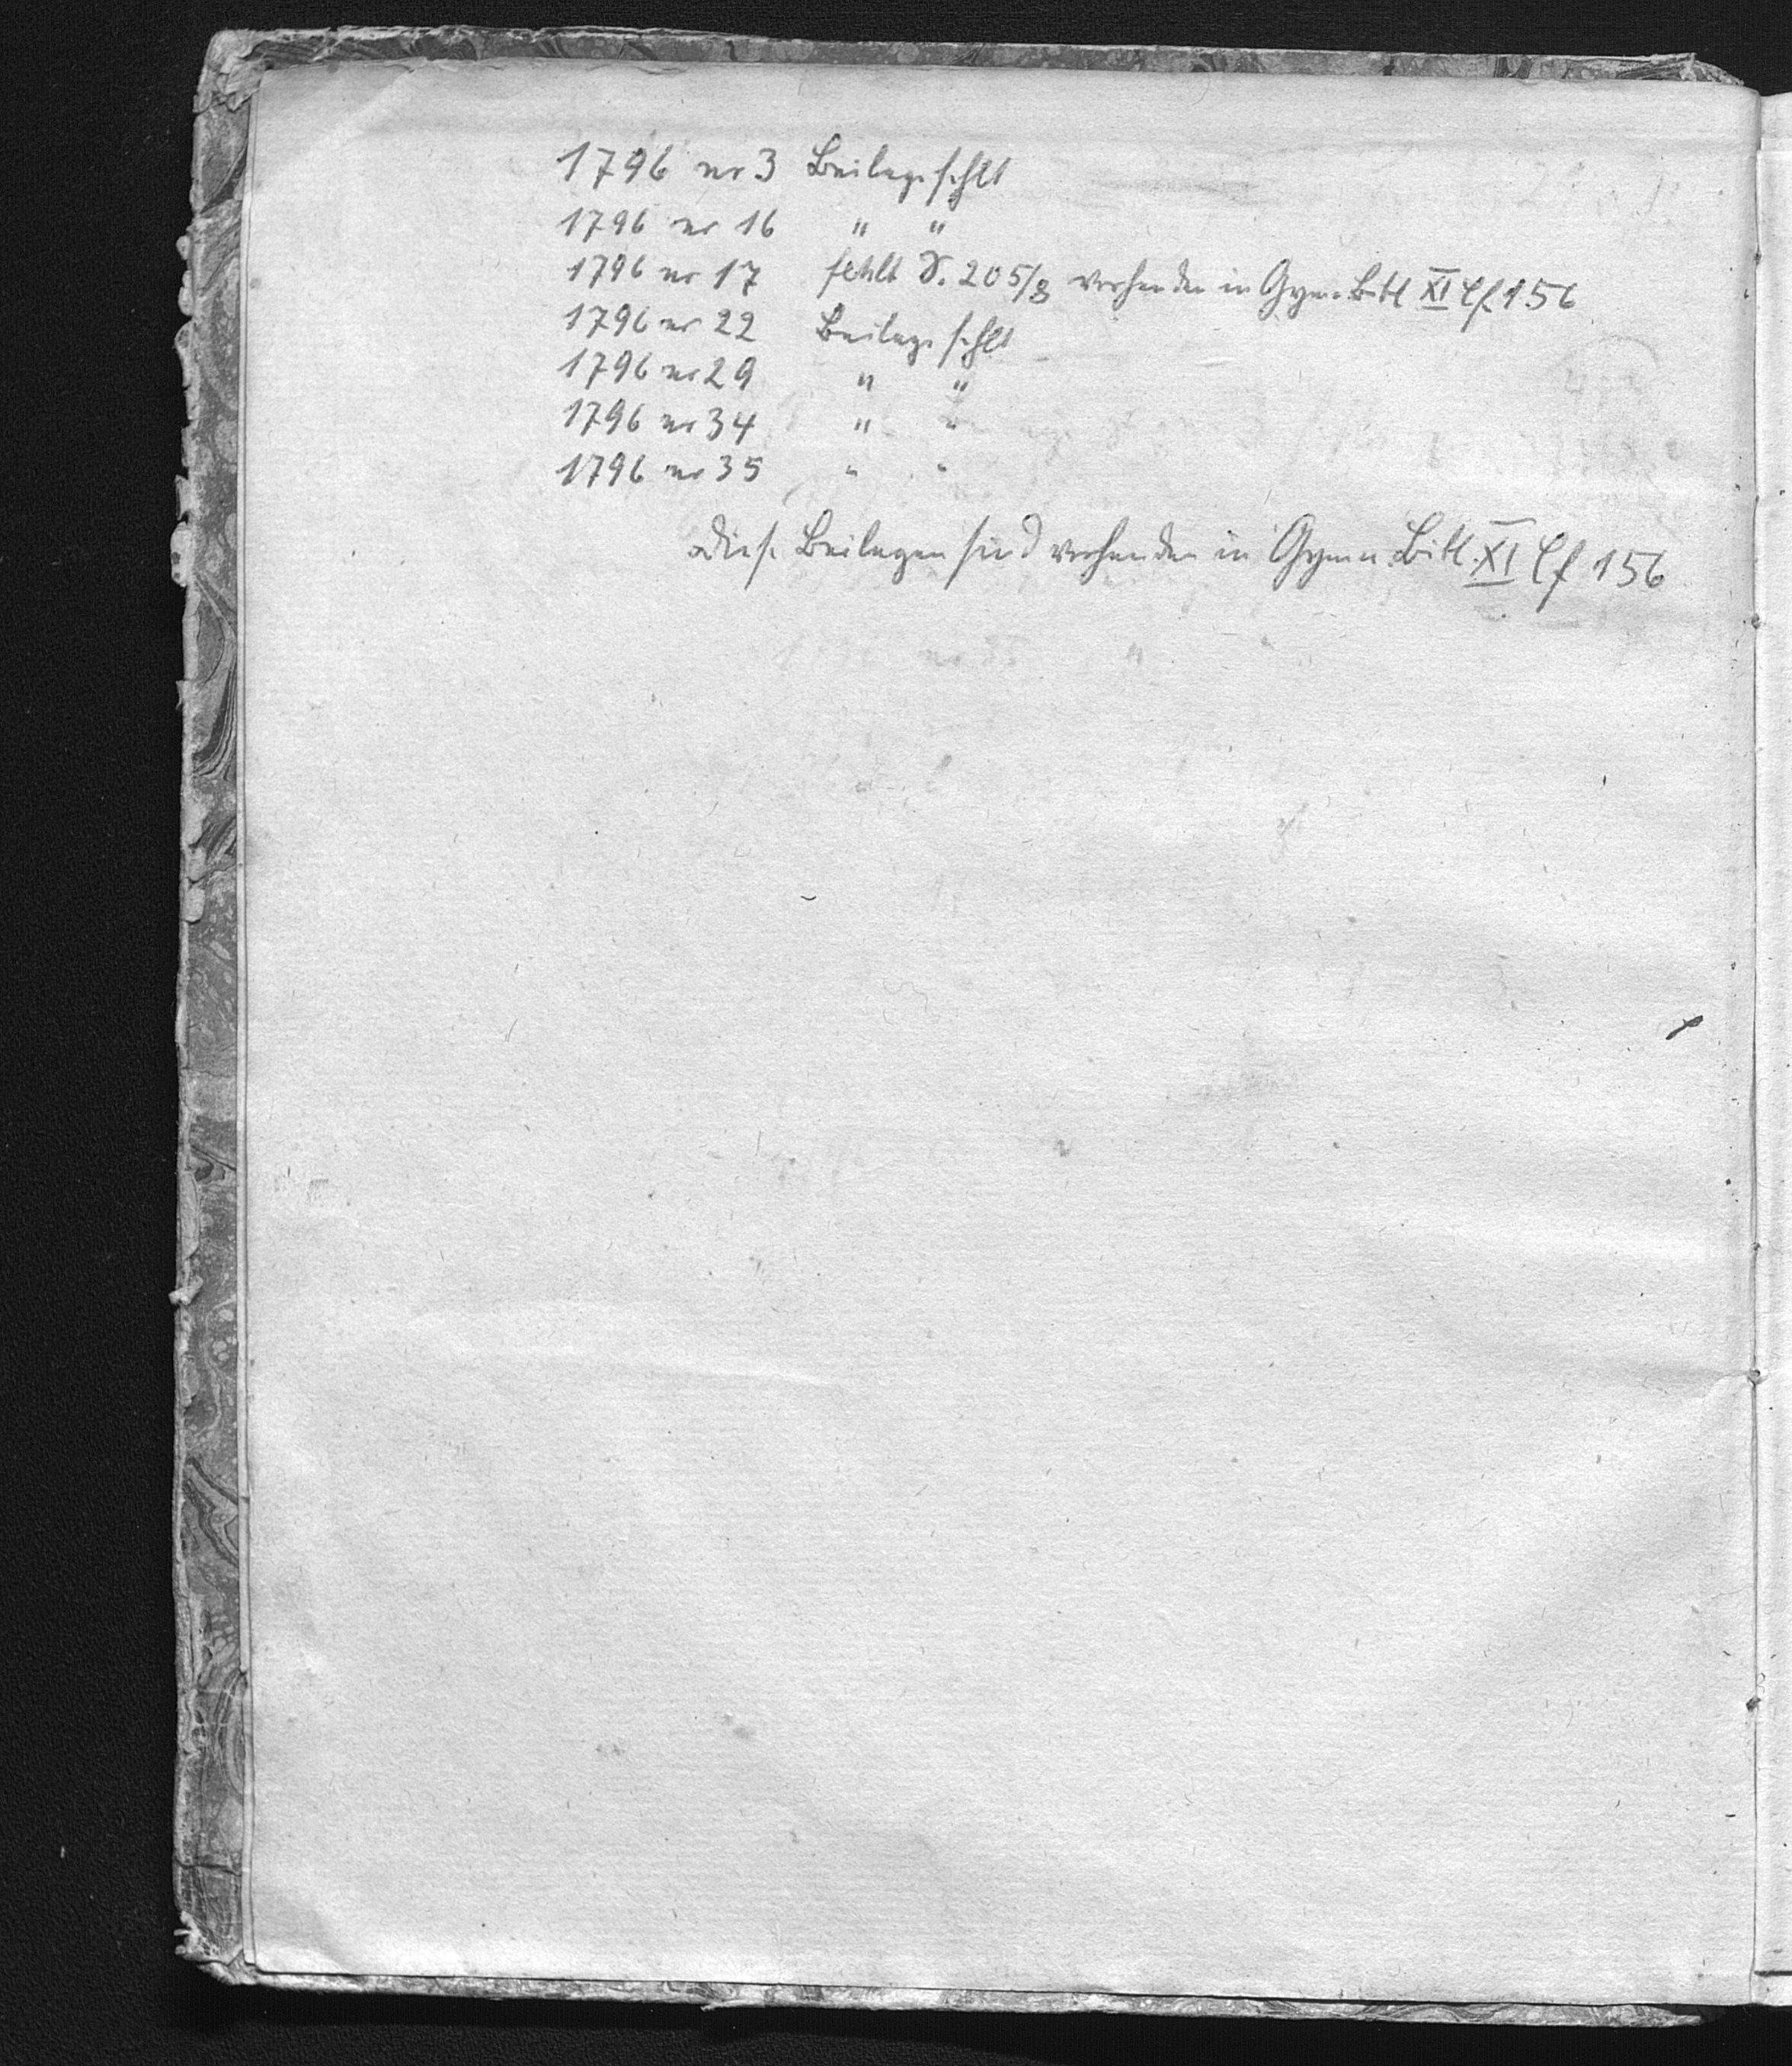 1796 nr 3 Beilage fehlt
1796 nr 16 " "
1796 nr 17 fehlt S. 205/8 vorhanden in Gymn. Bibl XI Cf 156
1796 nr 22 Beilage fehlt
1796 nr 29 " "
1796 nr 34 " "
1796 nr 35 " "
Diese Beilagen sind vorhanden in Gymn. Bibl. XI Cf 156